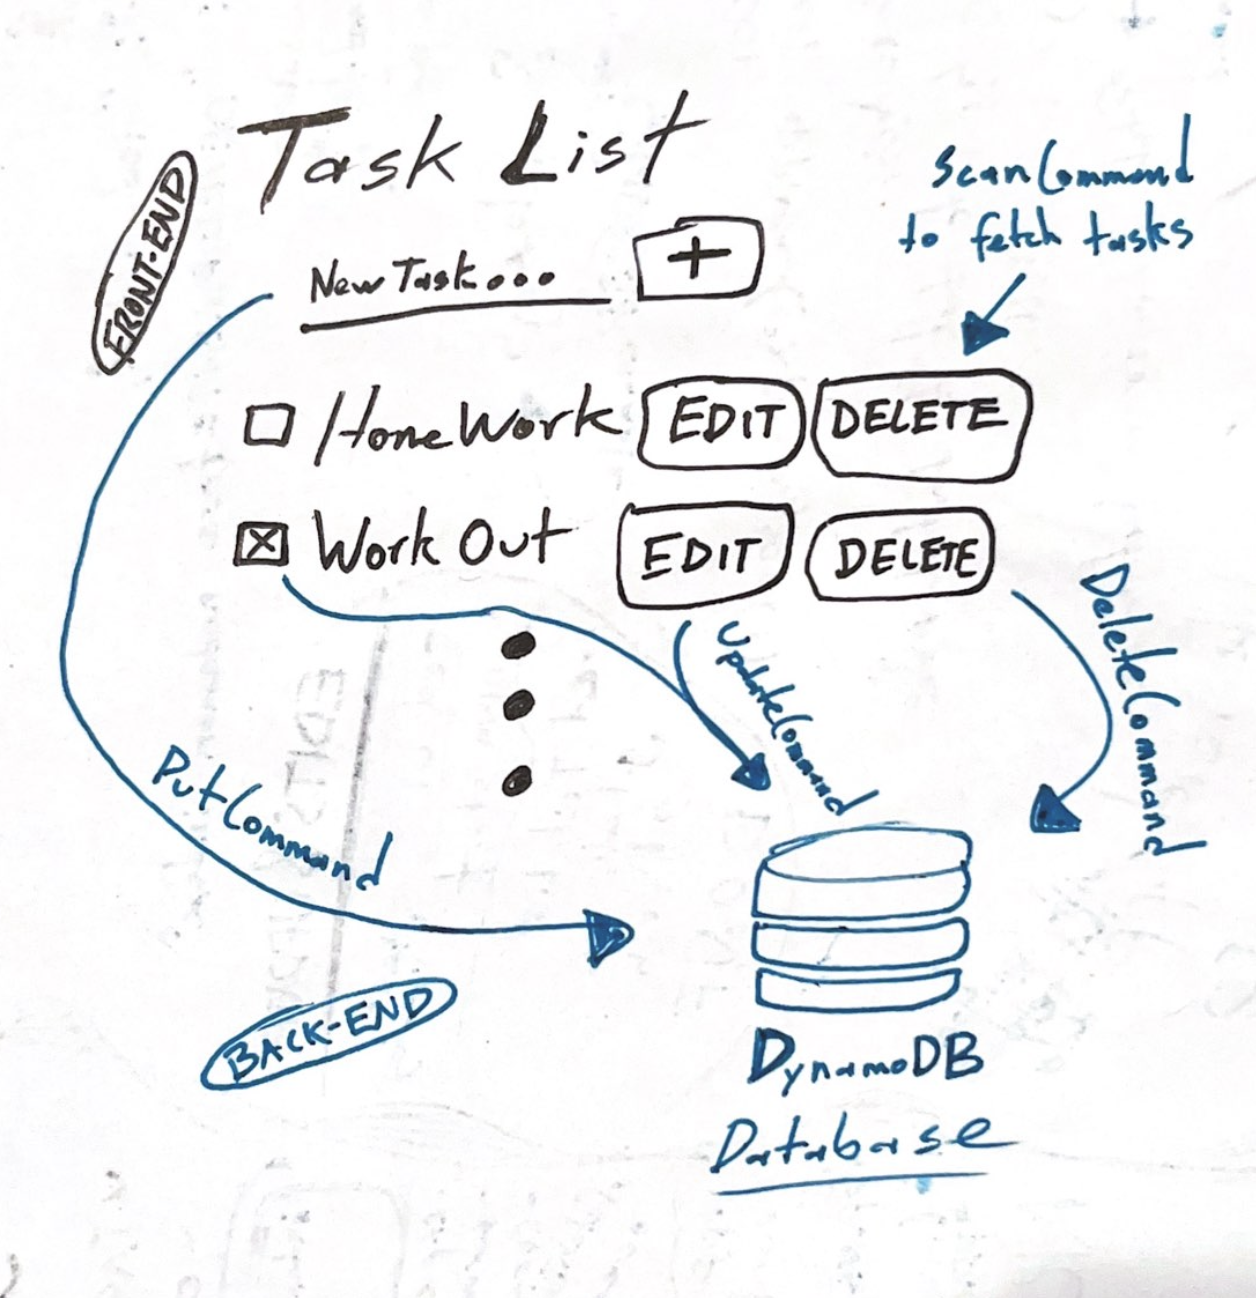 Task List
FRONT-END
ScanCommand
to fetch tasks
New Task...
+
HomeWork EDIT DELETE
Work Out EDIT DELETE
UpdateCommand
DeleteCommand
PutCommand
BACK-END
DynamoDB
Database